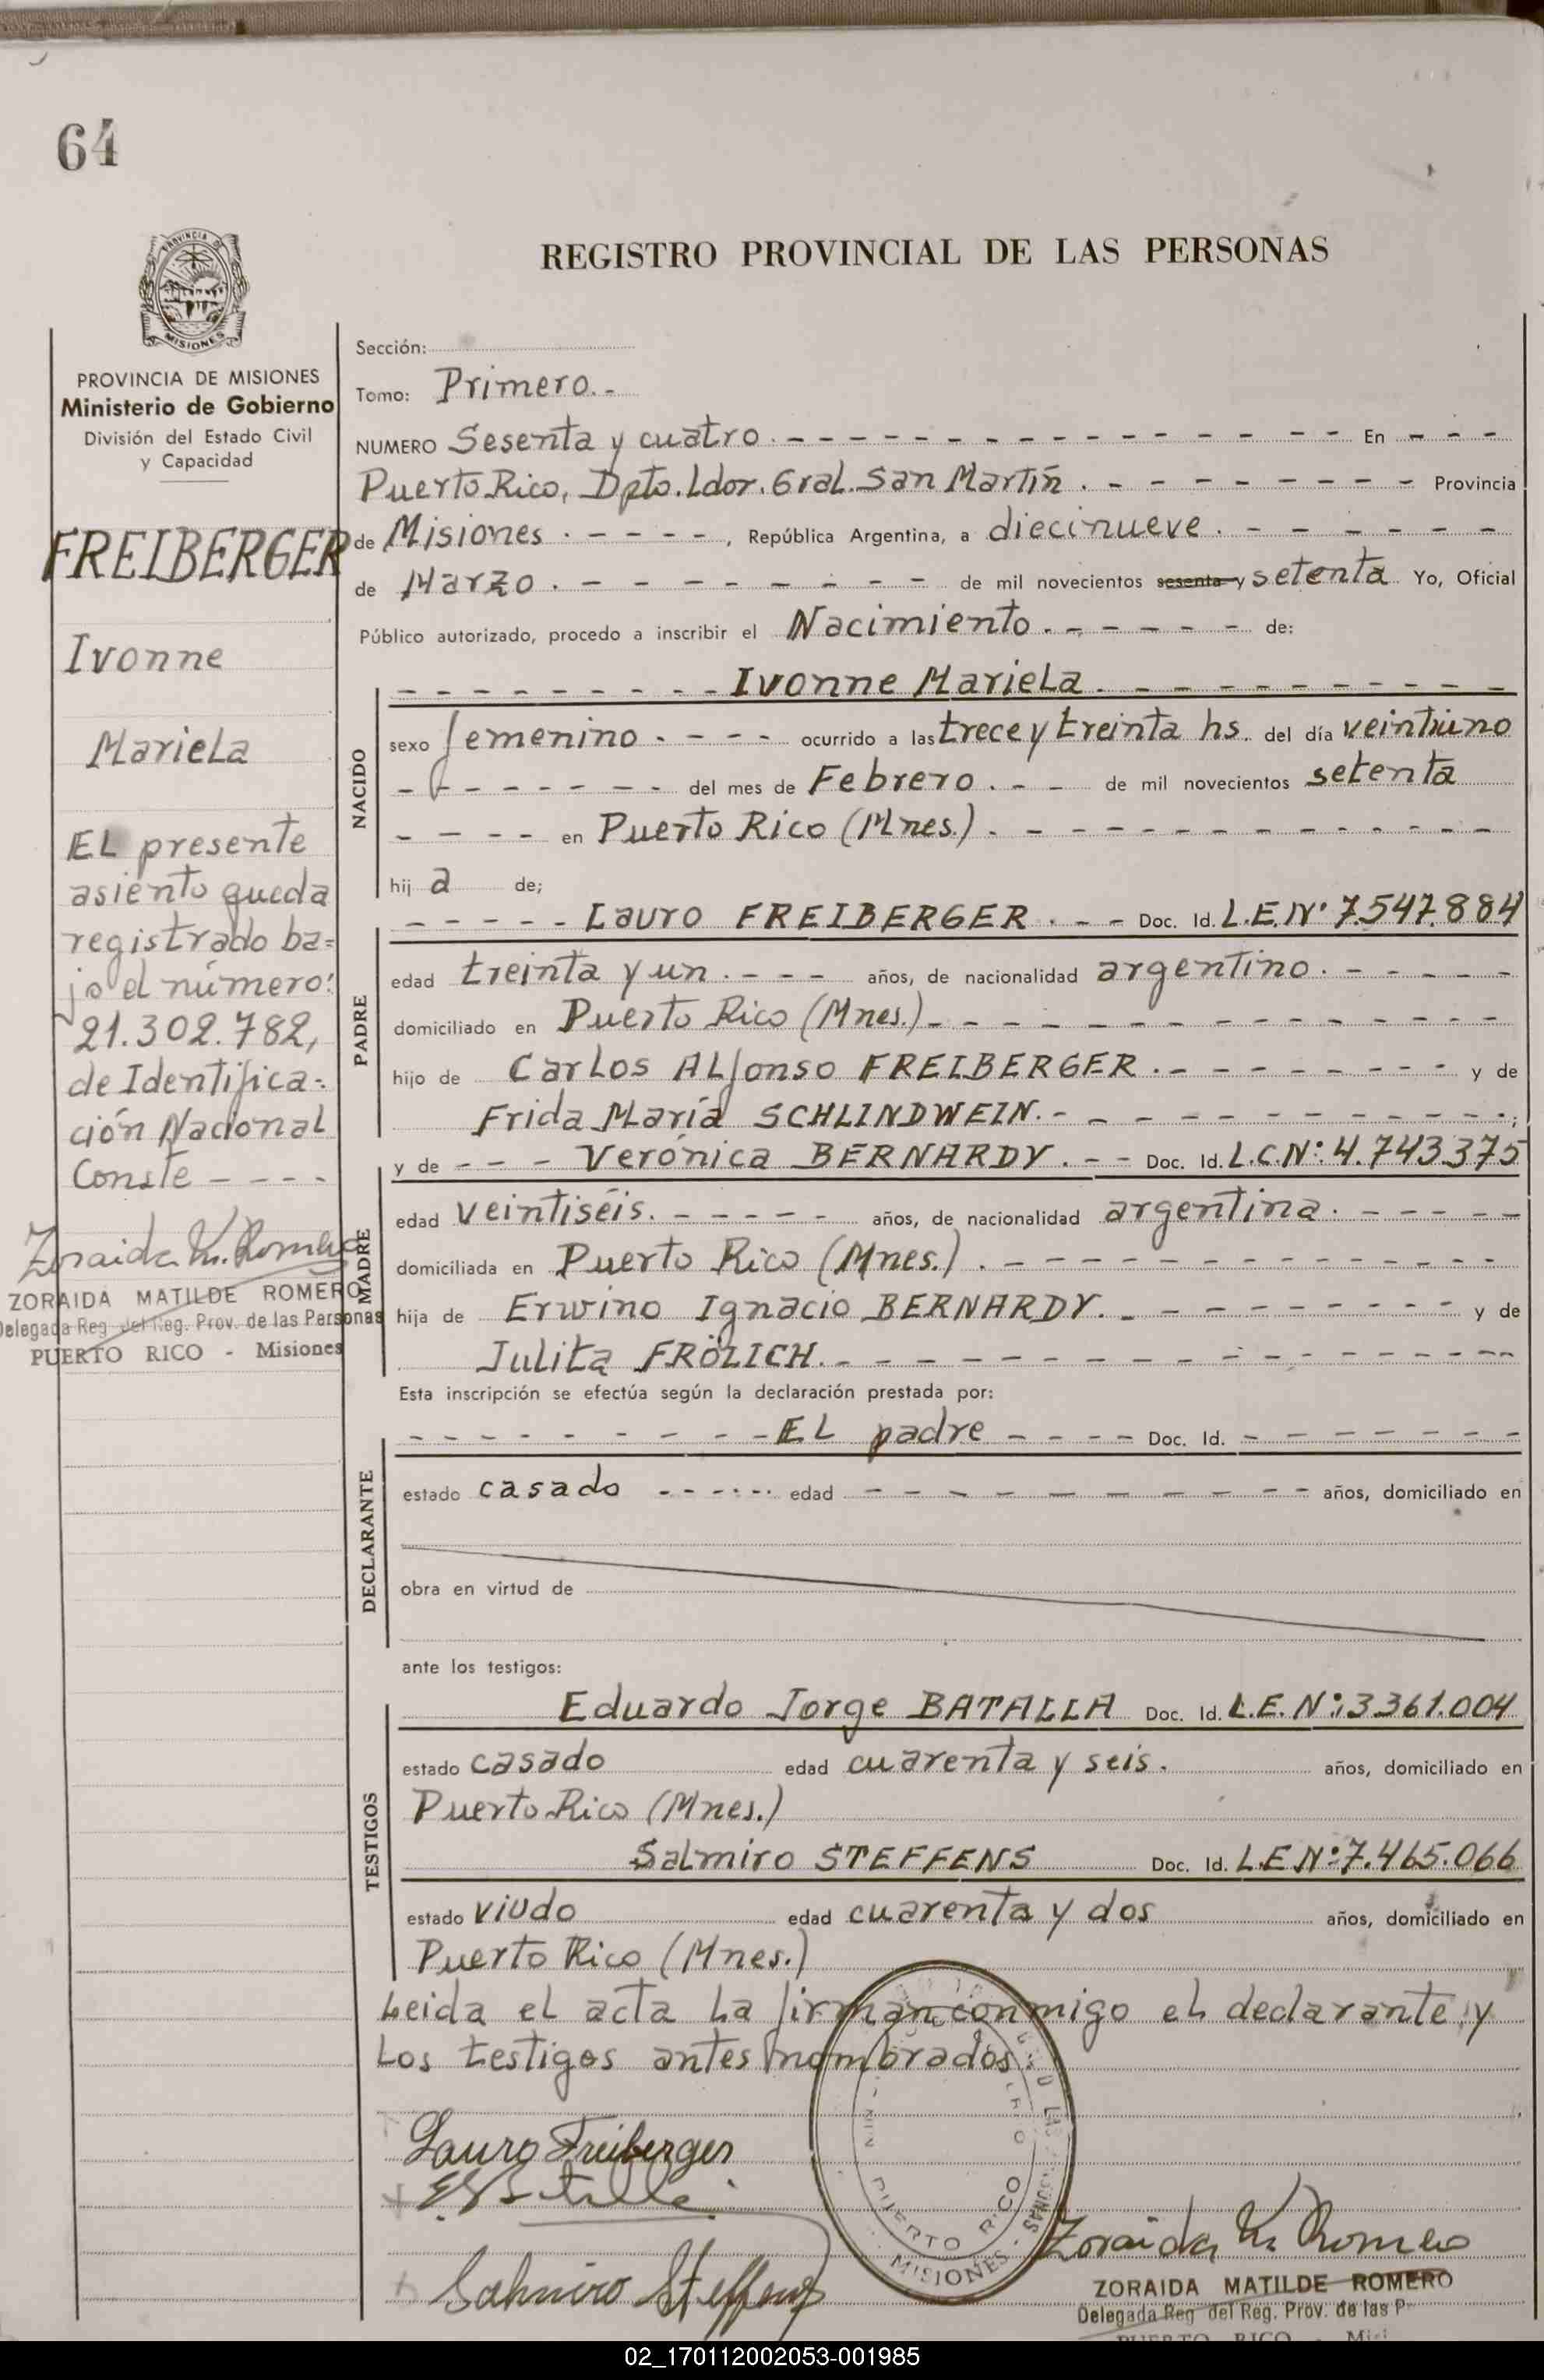 64
REGISTRO PROVINCIAL DE LAS PERSONAS
PROVINCIA DE
MISIONES
PROVINCIA DE MISIONES
Ministerio de Gobierno
División del Estado Civil
y Capacidad
FREIBERGER
Ivonne
Mariela
El presente
asiento queda
registrado ba=
jo el número:
21.302.782,
de Identifica-
ción Nacional
Conste - - - -
Zoraida M. Romero
ZORAIDA MATILDE ROMERO
Delegada Reg. del Reg. Prov. de las Personas
PUERTO RICO - Misiones
Sección:
Tomo: Primero.-
NUMERO Sesenta y cuatro. - - - En - - -
Puerto Rico, Dpto. Ldor. Gral. San Martín. - - - Provincia
de Misiones. - - - -, República Argentina, a diecinueve. - - -
de Marzo. - - - de mil novecientos sesenta y setenta Yo, Oficial
Público autorizado, procedo a inscribir el Nacimiento. - - - de:
- - - Ivonne Mariela. - - -
NACIDO
sexo femenino. - - - - ocurrido a las trece y treinta hs. del día veintiuno
- - - del mes de Febrero. - - de mil novecientos setenta
- - - - en Puerto Rico (Mnes.). - - -
hij a de;
PADRE
- - - - - Lauro FREIBERGER. - - Doc. Id. L.E.N° 7.547.884
edad treinta y un. - - - años, de nacionalidad argentino. - - - - -
domiciliado en Puerto Rico (Mnes.) - - -
hijo de Carlos Alfonso FREIBERGER. - - - y de
Frida María SCHLINDWEIN. - - - ;
MADRE
y de - - - Verónica BERNARDY. - - Doc. Id. L.C.N°: 4.743.375
edad veintiséis. - - - - - años, de nacionalidad argentina. - - - - -
domiciliada en Puerto Rico (Mnes.). - - -
hija de Erwino Ignacio BERNARDY. - - - y de
Julita FRÖLICH. - - -
Esta inscripción se efectúa según la declaración prestada por:
DECLARANTE
- - - El padre - - - - Doc. Id. - - -
estado casado - - - edad - - - años, domiciliado en
obra en virtud de
ante los testigos:
TESTIGOS
Eduardo Jorge BATALLA Doc. Id. L.E. N°: 3361.004
estado casado edad cuarenta y seis. años, domiciliado en
Puerto Rico (Mnes.)
Salmiro STEFFENS Doc. Id. L.E N°: 7.465.066
estado viudo edad cuarenta y dos años, domiciliado en
Puerto Rico (Mnes.)
Leida el acta la firman conmigo el declarante y
los testigos antes nombrados
Lauro Freiberger
Salmiro Steffens
PUERTO RICO
MISIONES
Zoraida M. Romero
ZORAIDA MATILDE ROMERO
Delegada Reg del Reg. Prov. de las P
PUERTO RICO - Misi
02_170112002053-001985